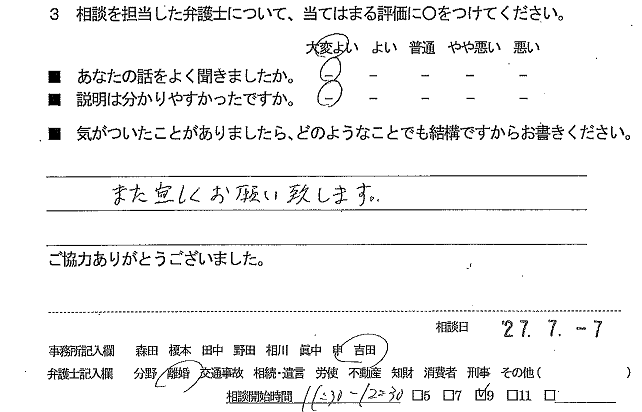 3 相談を担当した弁護士について、当てはまる評価に○をつけてください。
大変よい よい 普通 やや悪い 悪い
■ あなたの話をよく聞きましたか。 － － － － －
■ 説明は分かりやすかったですか。 － － － － －
■ 気がついたことがありましたら、どのようなことでも結構ですからお書きください。
また宜しくお願い致します。
ご協力ありがとうございました。
相談日 '27. 7. -7
事務所記入欄 森田 榎本 田中 野田 相川 眞中 申 吉田
弁護士記入欄 分野 離婚 交通事故 相続・遺言 労使 不動産 知財 消費者 刑事 その他(
相談開始時間 11:30-12:30 □5 □7 ☑9 □11 □